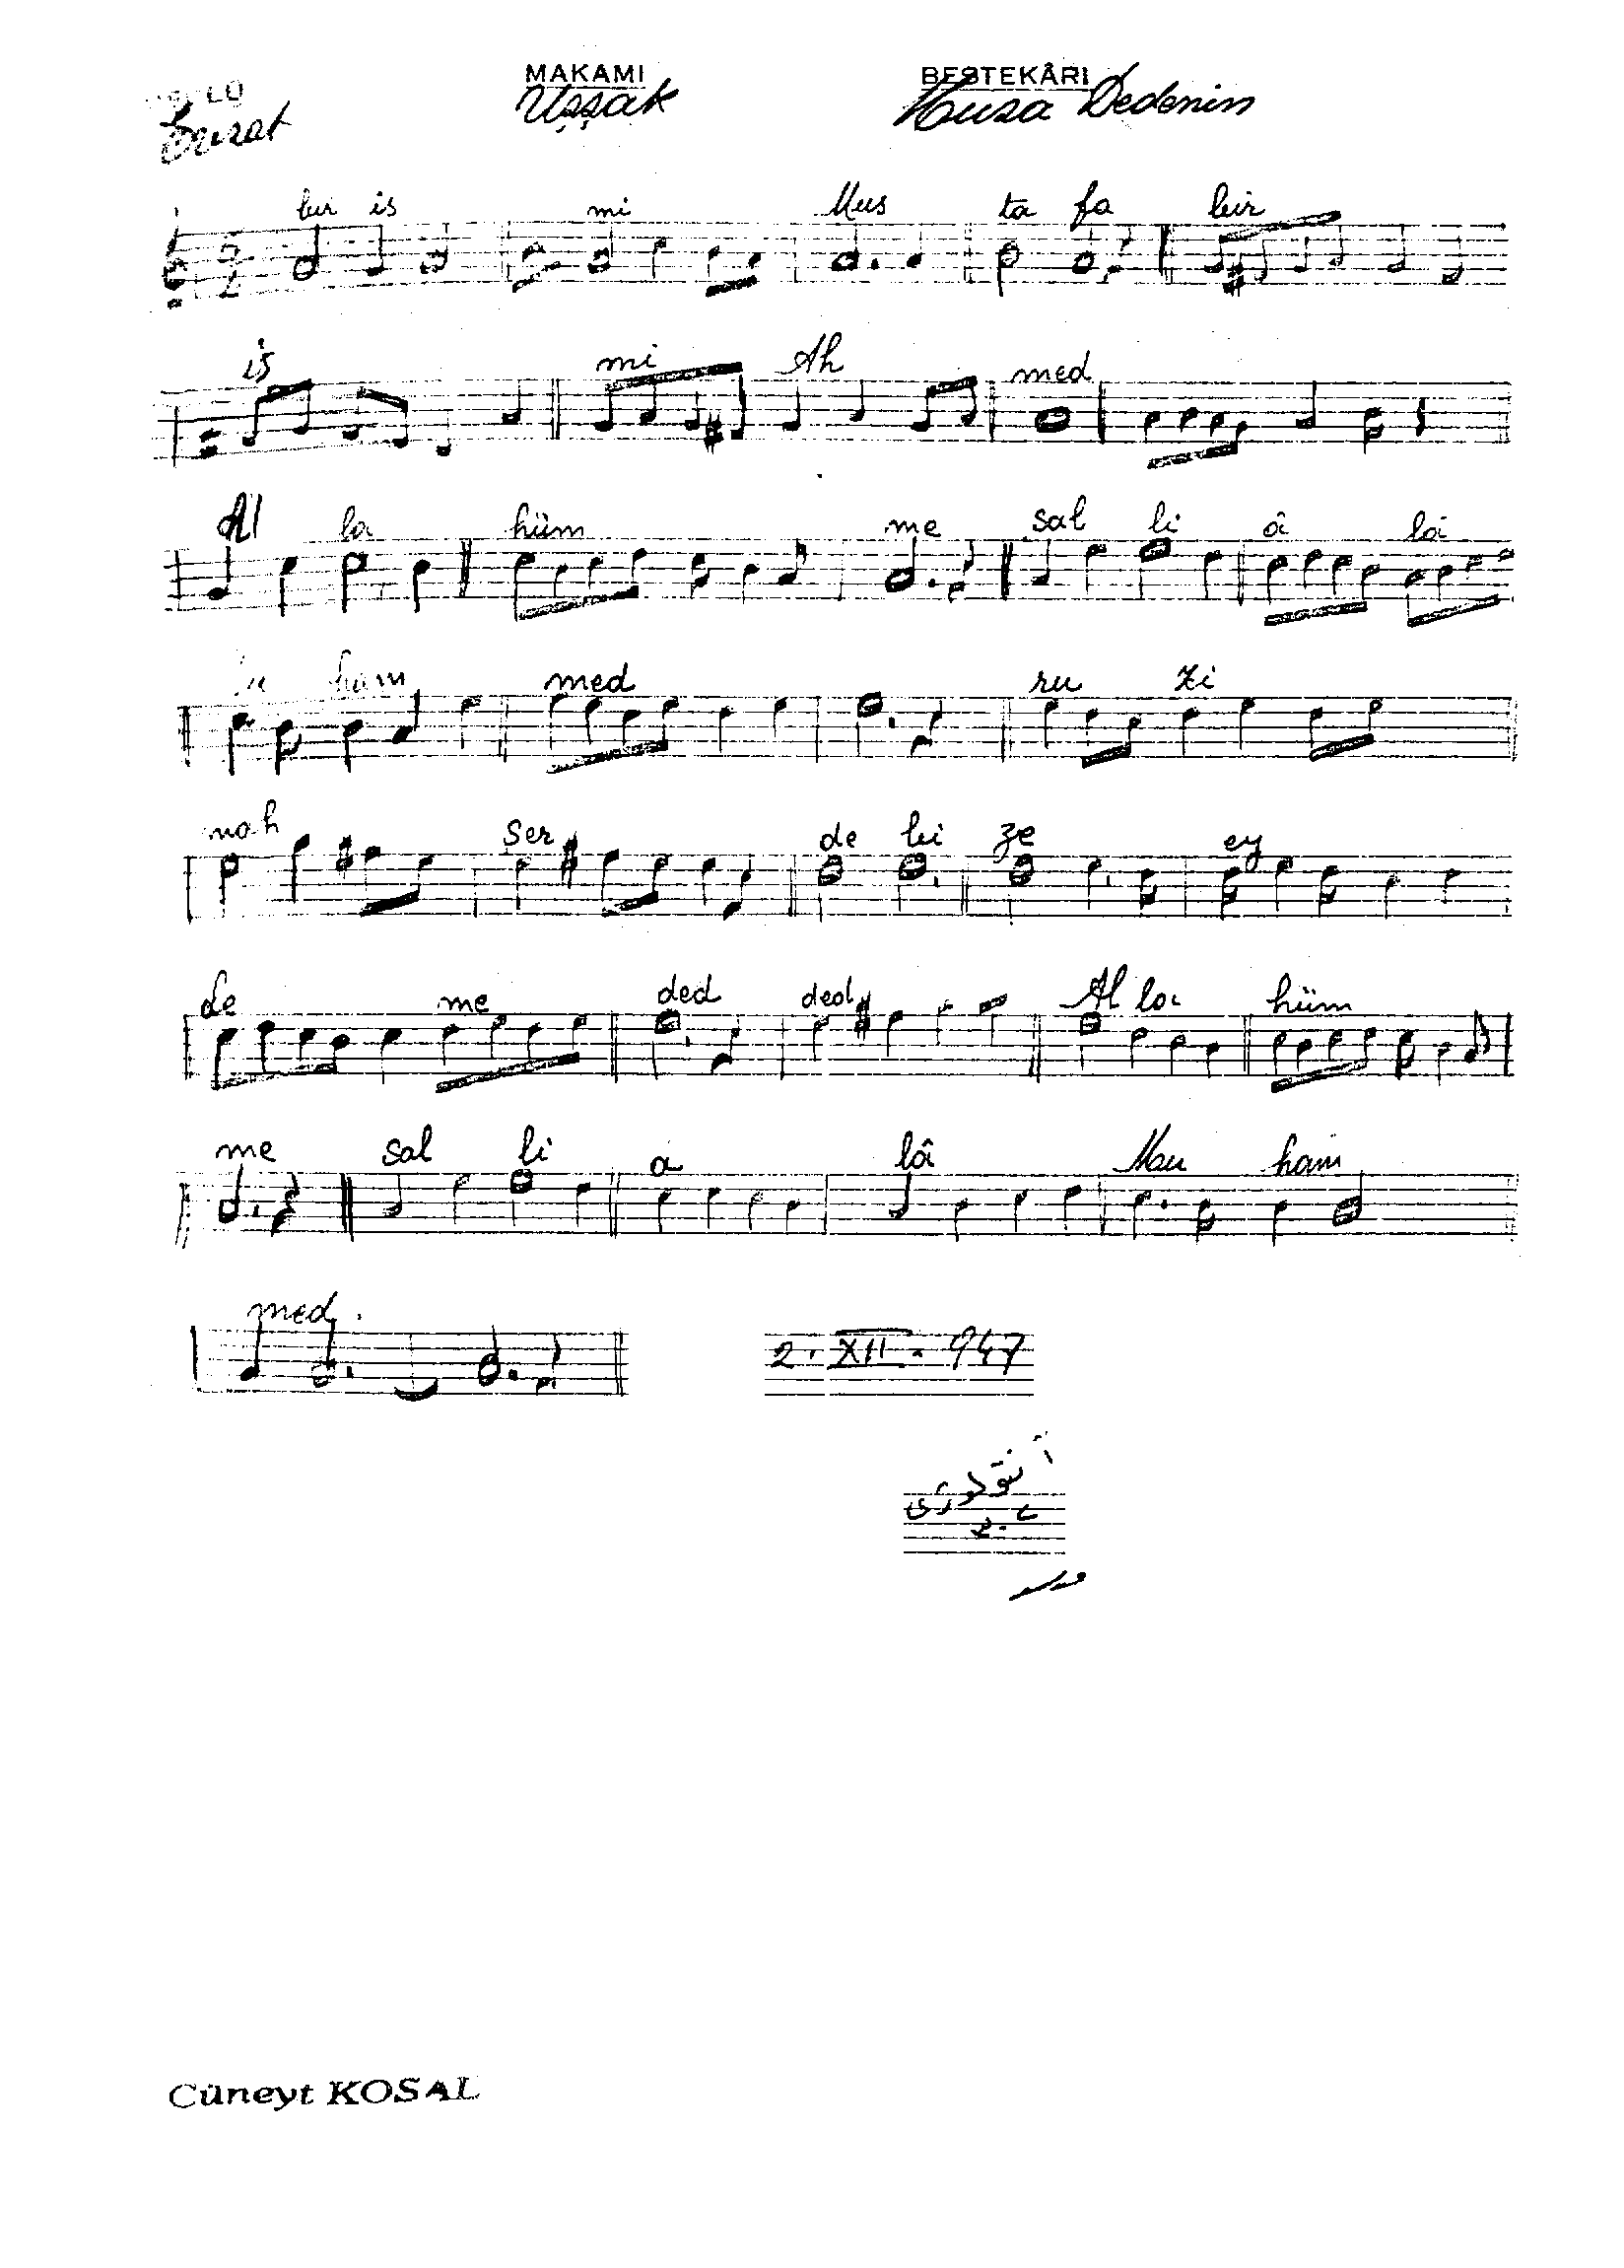 MAKAMI BESTEKÂRI
Uşşak Musa Dedenin
bir is mi Mus ta fa bir
is mi Ah med
Al la hüm me sal li â lâ
ham med ru zi
mah şer de bi ze ey
de me ded ded Al la hüm
me sal li a lâ Mu ham
med.
2. XII. 947
Cüneyt KOSAL